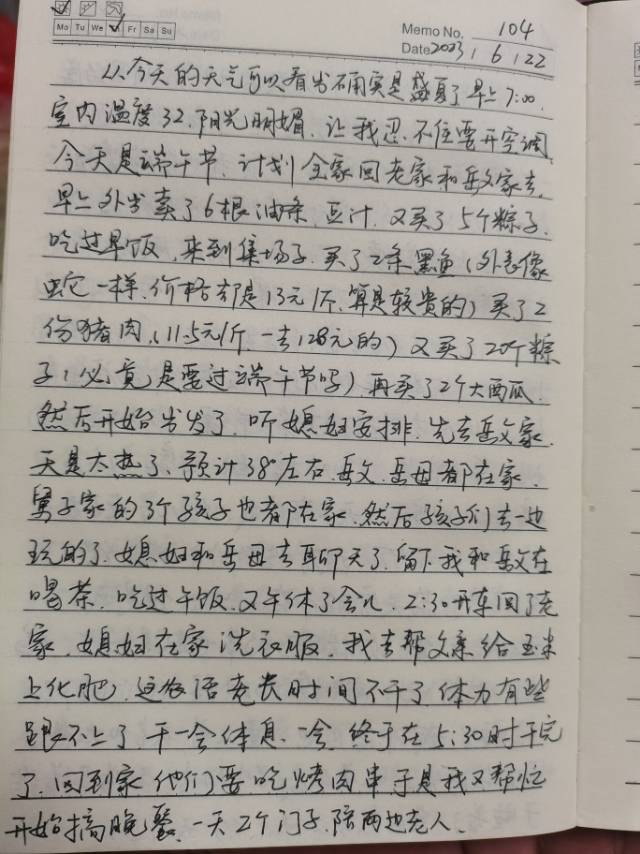 Mo Tu We Fr Sa Su
Memo No. 104
Date 2023 / 6 / 22
从今天的天气可以看出确实是盛夏了早上7:00.
室内温度32.阳光明媚.让我忍不住要开空调.
今天是端午节.计划全家回老家和岳父家去.
早上外出卖了6根油条.豆汁.又买了5个粽子.
吃过早饭.来到集场子.买了2条黑鱼(外表像
蛇一样.价格都是13元/斤.算是较贵的)买了2
份猪肉.(11.5元/斤一共128元的)又买了20个粽
子(必竟是要过端午节吗)再买了2个大西瓜.
然后开始出发了.听媳妇安排.先去岳父家.
天是太热了.预计38°左右.岳父.岳母都在家.
舅子家的3个孩子也都在家.然后孩子们去一边
玩的了.媳妇和岳母去聊天了.留下我和岳父在
喝茶.吃过午饭.又午休了会儿.2:30开车回了老
家.媳妇在家洗衣服.我去帮父亲给玉米
上化肥.这农活老长时间不干了体力有些
跟不上了.干一会体息一会.终于在5:30时干完
了.回到家他们要吃烤肉串于是我又帮忙
开始搞晚餐.一天2个门子.陪两边老人.